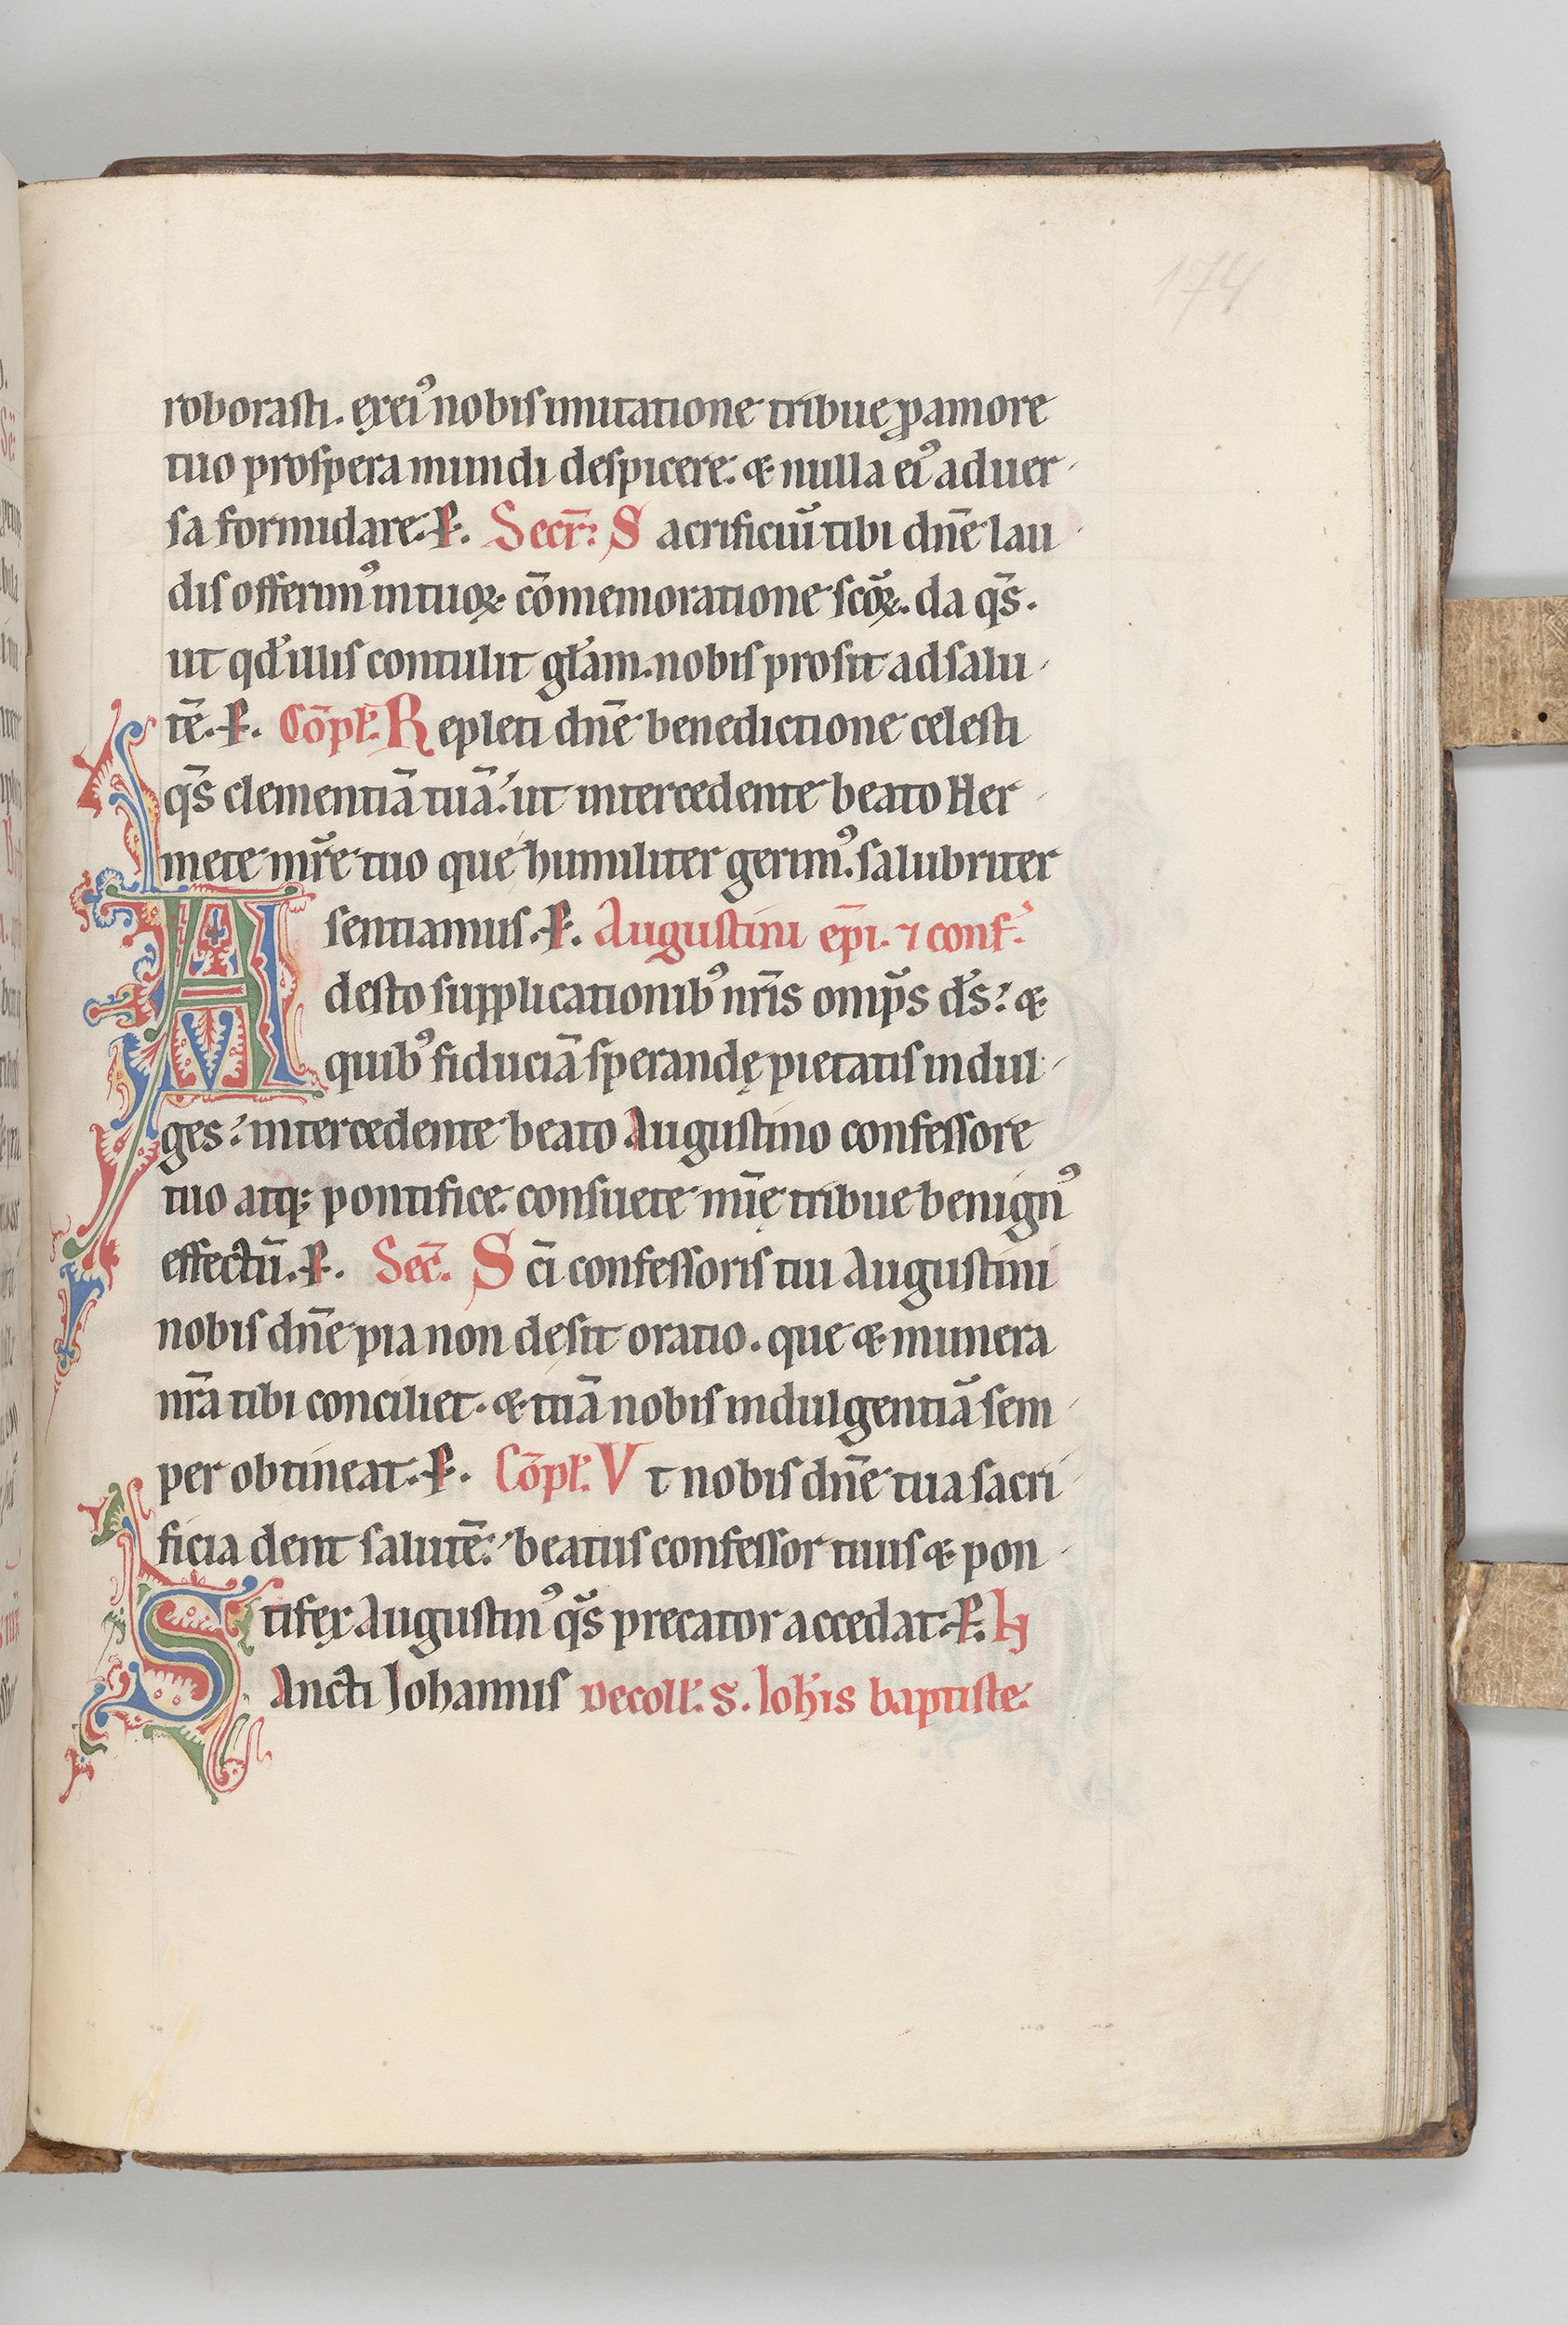 174
roborasti. ex ei᷒ nobis imitatione tribue ꝓ amore
tuo prospera mundi despicere. & nulla ei᷒ aduer-
sa formidare. P. Secr̄. Sacrificiū tibi dn̄e lau-
dis offerim᷒ in tuoꝝ cōmemoratione sc̄oꝝ. da qs̄.
ut qd̄ illis contulit gl̄am. nobis prosit ad salu-
tē. P. Cōpl̄. Repleti dn̄e benedictione celesti
qs̄ clementiā tuā. ut intercedente beato Her-
mete mr̄e tuo que humiliter gerim᷒. salubriter
sentiamus. P. Augustini ep̄i. ⁊ conf.
Adesto supplicationib᷒ nr̄is omp̄s ds̄. &
quib᷒ fiduciā sperandę pietatis indul-
ges. intercedente beato Augustino confessore
tuo atq; pontifice. consuete mīe tribue benign᷒
effectū. P. Sec̄. Sc̄i confessoris tui Augustini
nobis dn̄e pia non desit oratio. que & munera
nr̄a tibi conciliet. & tuā nobis indulgentiā sem-
per obtineat. P. Cōpl̄. Ut nobis dn̄e tua sacri-
ficia dent salutē. beatus confessor tuus & pon-
tifex Augustin᷒ qs̄ precator accedat. P. H
SAncti Iohannis Decoll̄. S. Ioh̄is baptiste.